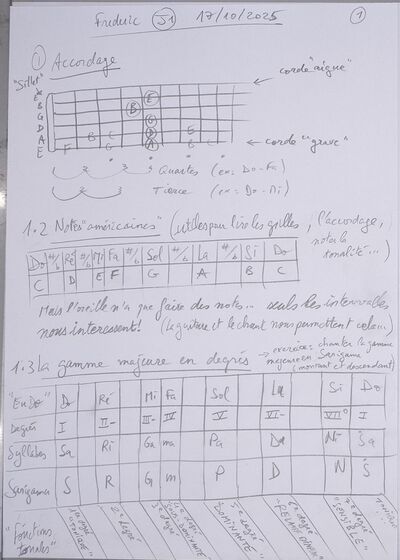 Frederic S1 17/10/2025 1
1 Accordage
"Sillet" corde "aigue"
E
B E
G B
D G
A B C D E
E F G A B C corde "grave"
Quartes (ex: Do-Fa)
Tierce (ex: Do-Mi)
1.2 Notes "américaines" (utiles pour lire les grilles, l'accordage,
noter la
tonalité...)
Do #/b Ré #/b Mi Fa #/b Sol #/b La #/b Si Do
C D E F G A B C
Mais l'oreille n'a que faire des notes... seuls les intervalles
nous interessent! (La guitare et le chant nous permettent cela...)
1.3 La gamme majeure en degrés → exercice: chanter la gamme
majeure en Sargam
(montant et descendant)
"En Do" Do Ré Mi Fa Sol La Si Do
Degrés I II- III- IV V VI- VII° I
Syllabes Sa Ri Ga ma Pa Da Ni Sa
Sargam S R G m P D N S
"Fonctions tonales" 1er degré "TONIQUE" 2e degré 3e degré 4e degré SOUS DOMINANTE 5e degré DOMINANTE 6e degré "RELATIF MINEUR" 7e degré "SENSIBLE"